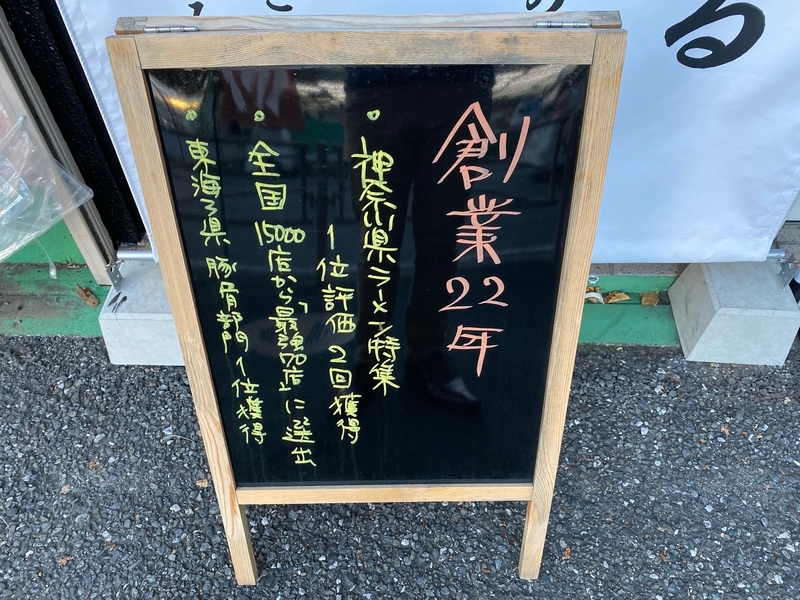 創業22年
• 神奈川県ラーメン特集
1位評価2回獲得
• 全国15000店から「最強70店」に選出
• 東海3県豚骨部門1位獲得
る